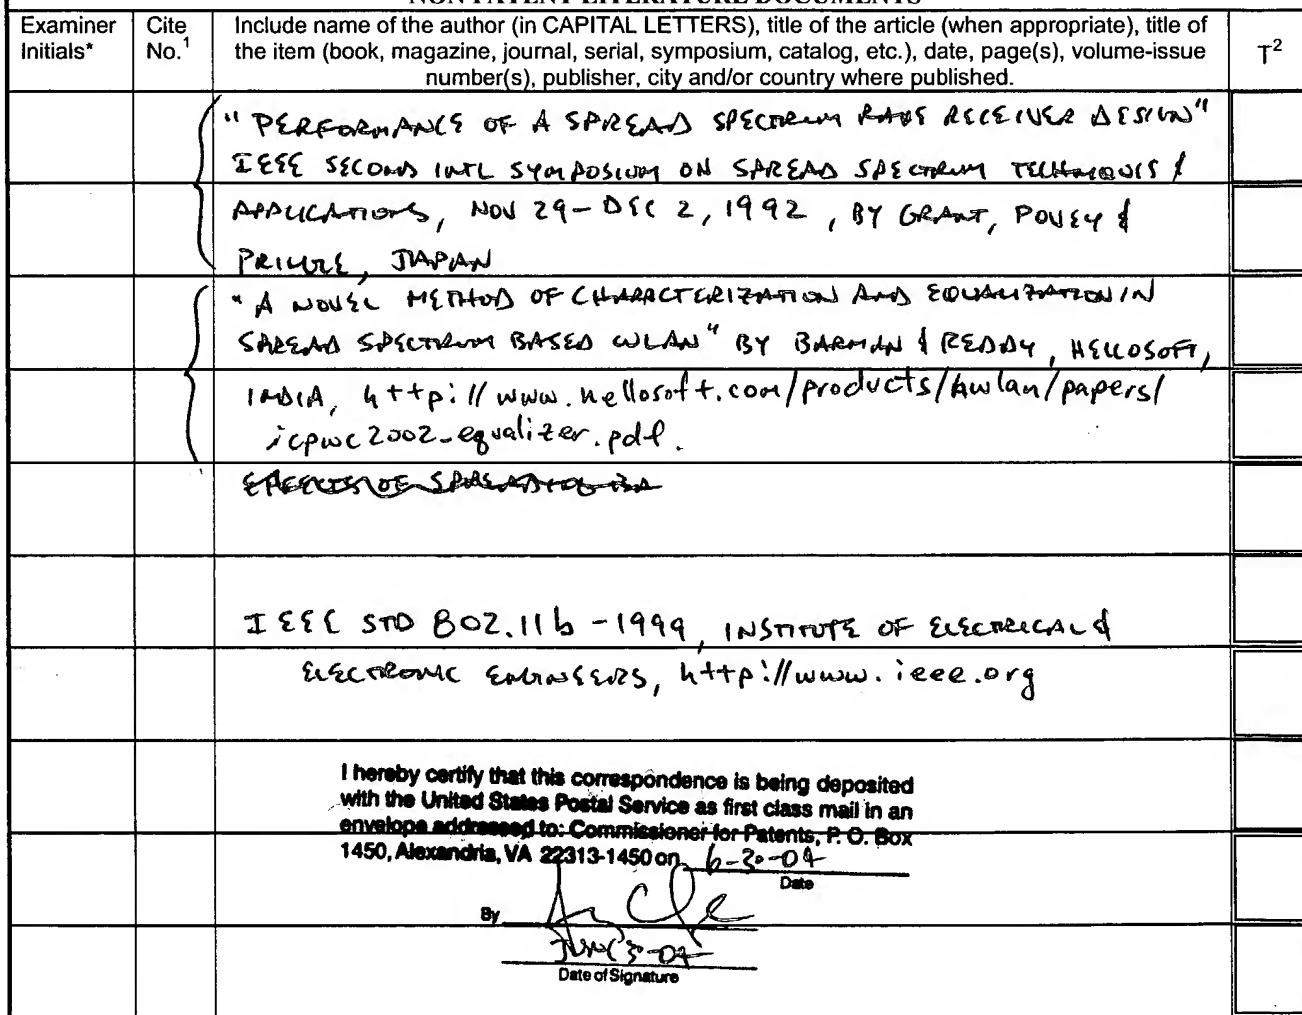 NON PATENT LITERATURE DOCUMENTS
Examiner Initials*
Cite No.1
Include name of the author (in CAPITAL LETTERS), title of the article (when appropriate), title of
the item (book, magazine, journal, serial, symposium, catalog, etc.), date, page(s), volume-issue
number(s), publisher, city and/or country where published.
T2
"PERFORMANCE OF A SPREAD SPECTRUM RAKE RECEIVER DESIGN"
IEEE SECOND INTL SYMPOSIUM ON SPREAD SPECTRUM TECHNIQUES &
APPLICATIONS, NOV 29-DEC 2, 1992, BY GRANT, POVEY &
JAPAN
"A NOVEL METHOD OF CHARACTERIZATION AND EQUALIZATION IN
SPREAD SPECTRUM BASED WLAN" BY BARMAN & REDDY, HELLOSOFT,
INDIA, http://www.hellosoft.com/products/hwlan/papers/
icpwc2002-equalizer.pdf.
EFFECTS OF SPREADING
IEEE STD 802.11b-1999, INSTITUTE OF ELECTRICAL &
ELECTRONIC ENGINEERS, http://www.ieee.org
I hereby certify that this correspondence is being deposited
with the United States Postal Service as first class mail in an
envelope addressed to: Commissioner for Patents, P. O. Box
1450, Alexandria, VA 22313-1450 on 6-30-04
Date
By
Date of Signature